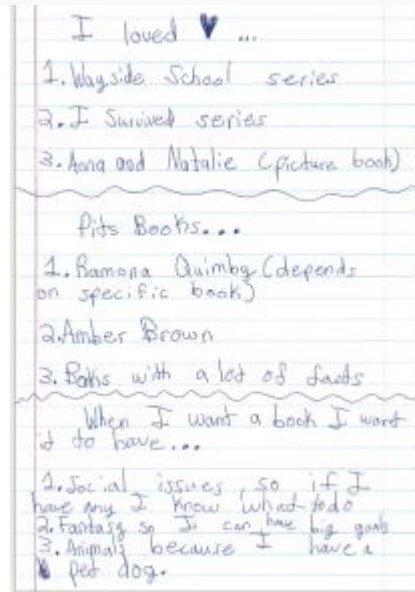 I loved ♥ ...
1. Wayside School series
2. I Survived series
3. Anna and Natalie (picture book)
Pits Books...
1. Ramona Quimby (depends
on specific book)
2. Amber Brown
3. Books with a lot of facts
When I want a book I want
it to have...
1. Social issues, so if I
have any I know what to do
2. Fantasy so I can have big goals
3. Animals because I have a
pet dog.